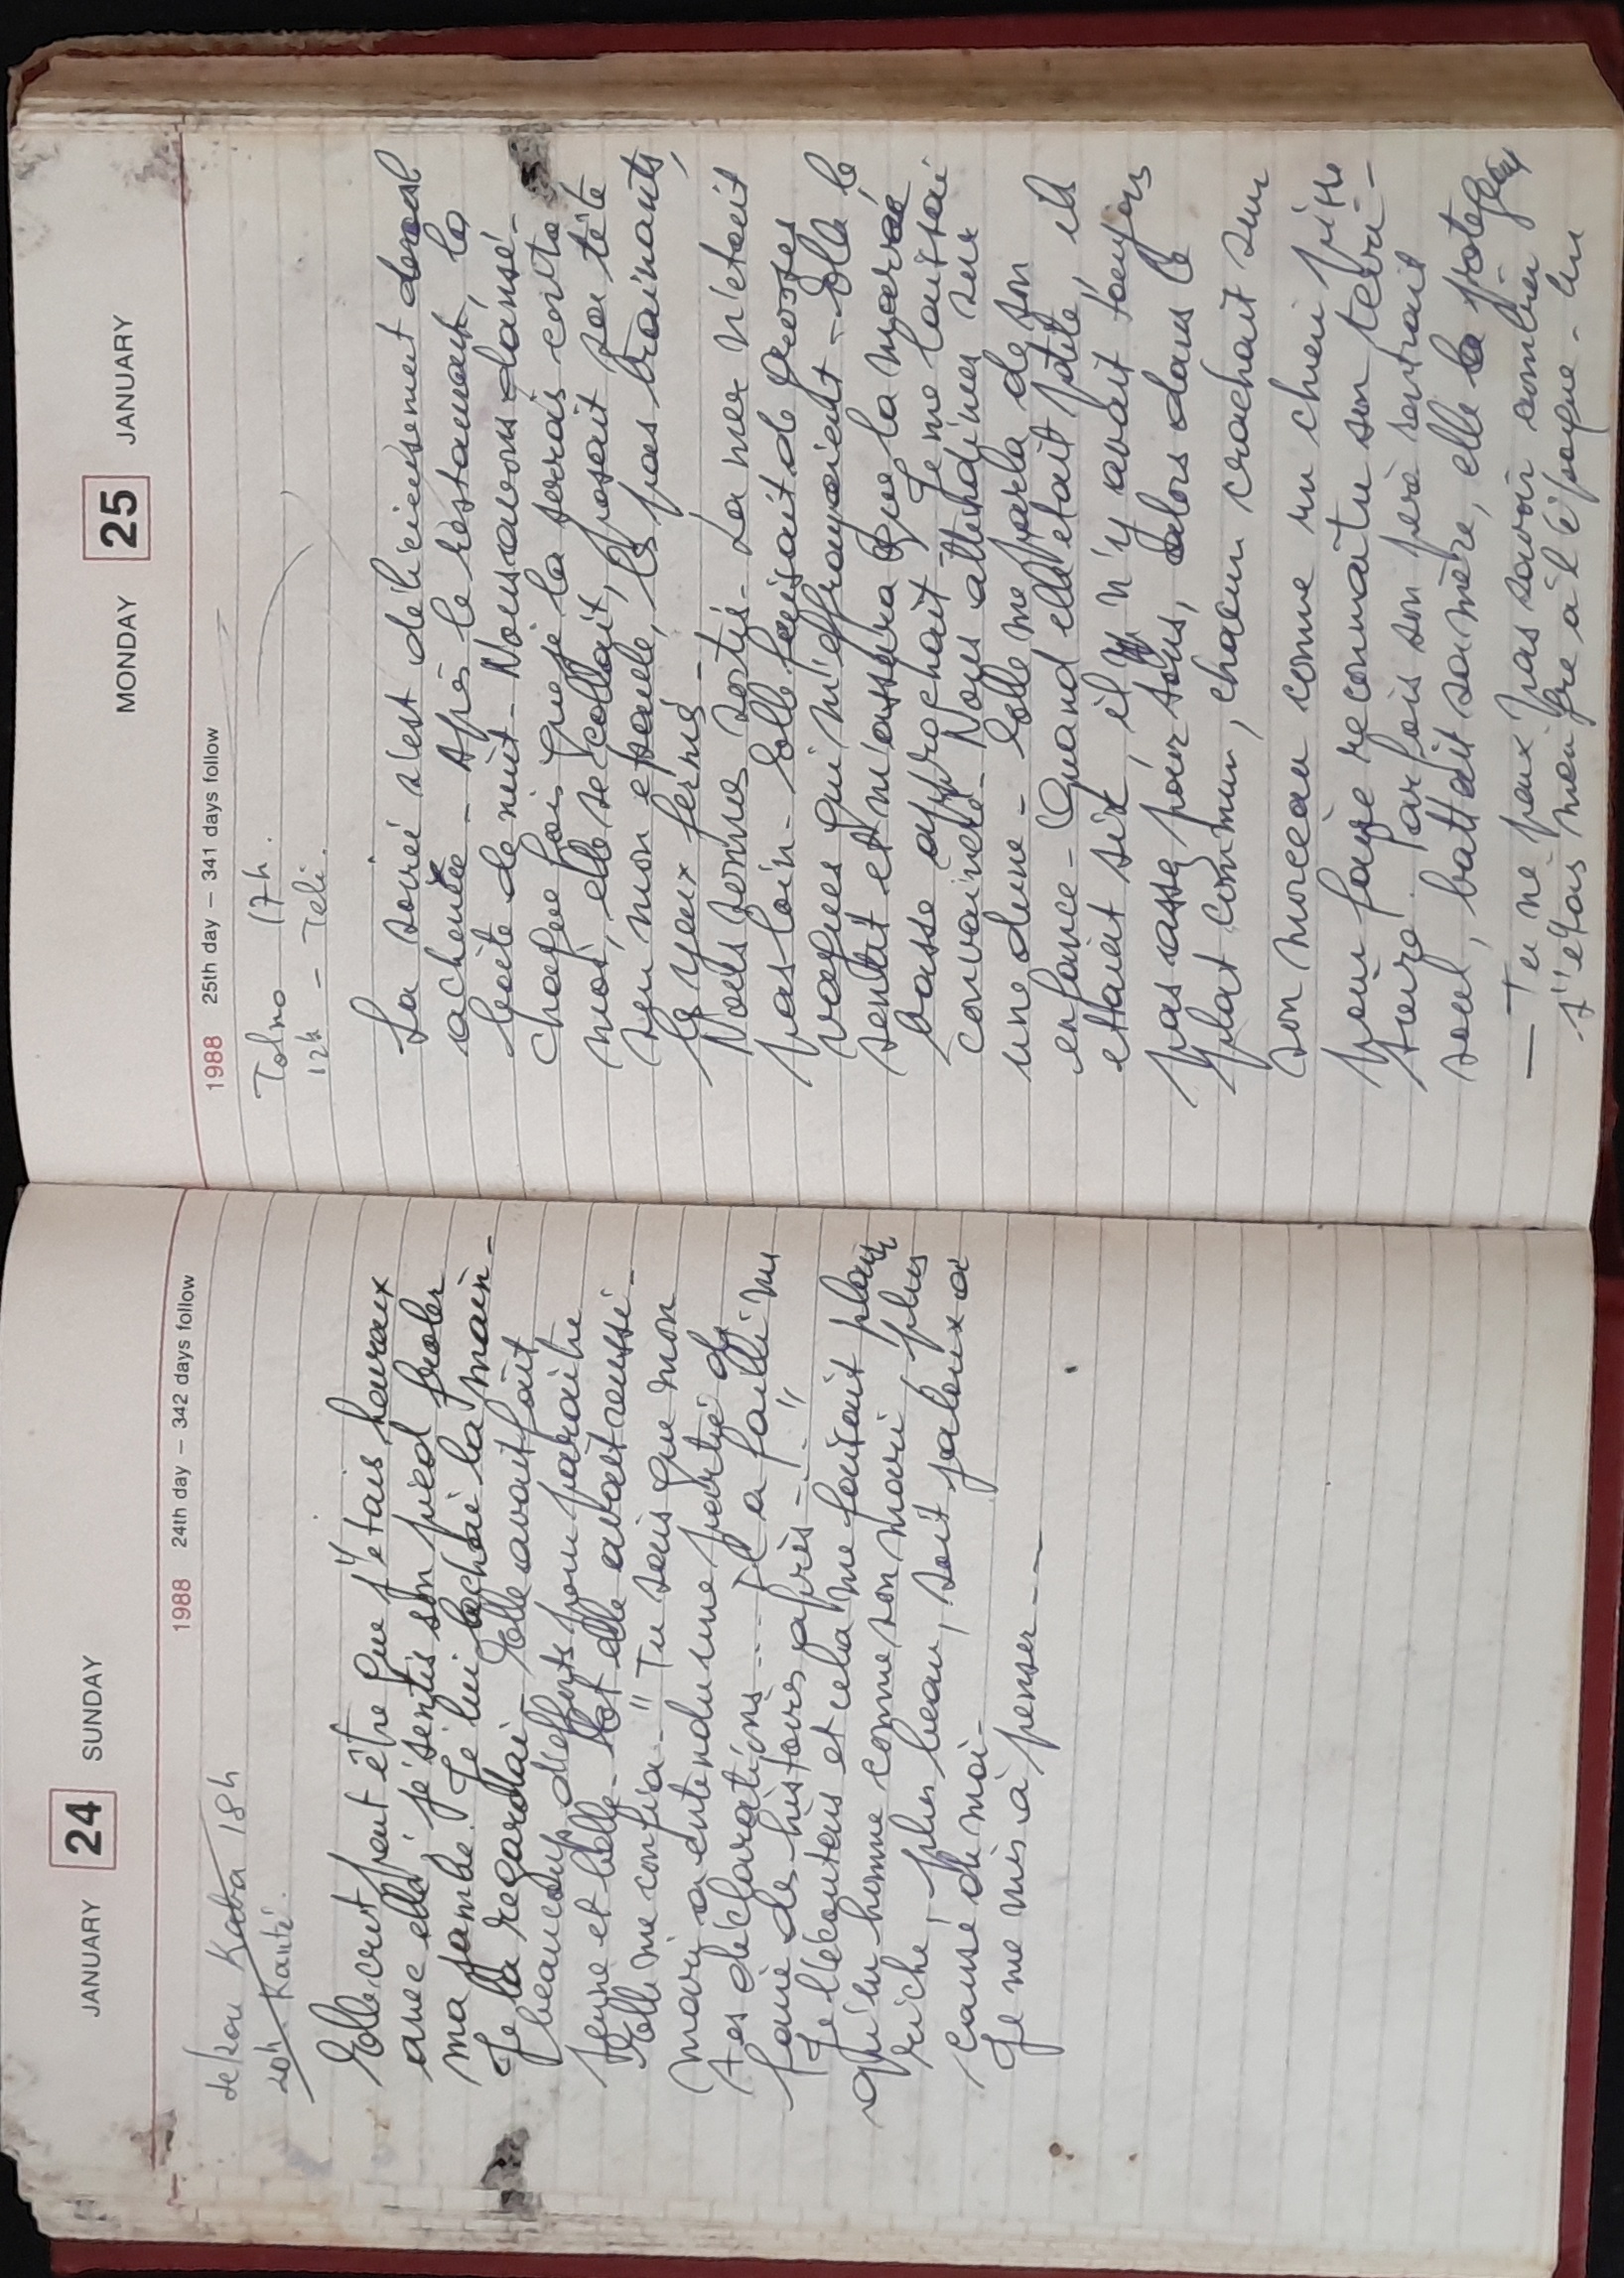 JANUARY 24 SUNDAY
1988 24th day – 342 days follow
dekou Kaba 18h
20h Kanté.
Elle crut peut être que j'étais heureux
avec elle, je sentis son pied froler
ma jambe. Je lui lachai la main –
Je la regardai – Elle avait fait
beaucoup d'efforts pour paraitre
jeune et belle – Et elle avait reussi –
Elle me confia – "Tu sais que mon
mari a entendu une partie de
tes déclarations... Il a failli me
faire des histoires après --- !"
Je l'écoutais et cela me faisait plaisir
qu'un homme comme son mari, plus
riche, plus beau, soit jaloux a
cause de moi –
Je me mis à penser ---
MONDAY 25 JANUARY
1988 25th day – 341 days follow
Tolmo 17h.
12h – Teli.
La soirée s'est délicieusement
achevée – Après le restaurant, la
boite de nuit – Nous avons dansé –
Chaque fois que je la serrais contre
moi, elle se collait, posait sa tête
sur mon epaule, les pas trainants,
les yeux fermés –
Nous sommes sortis – La mer n'etait
pas loin – Elle faisait de grosses
vagues qui m'effrayaient – Elle le
sentit et m'assura que la marée
basse approchait – Je me laissai
convaincre – Nous attendimes sur
une dune – Elle me parla de son
enfance – Quand elle était petite, ils
etaient six, il n'y avait toujours
pas assez pour tous, alors dans le
plat commun, chacun crachait sur
son morceau comme un chien pisse
pour faire reconnaitre son terri-
toire. Parfois son père rentrait
soul, battait sa mère, elle la protegeait
— Tu ne peux pas savoir combien
j'étais maigre à l'époque – Un